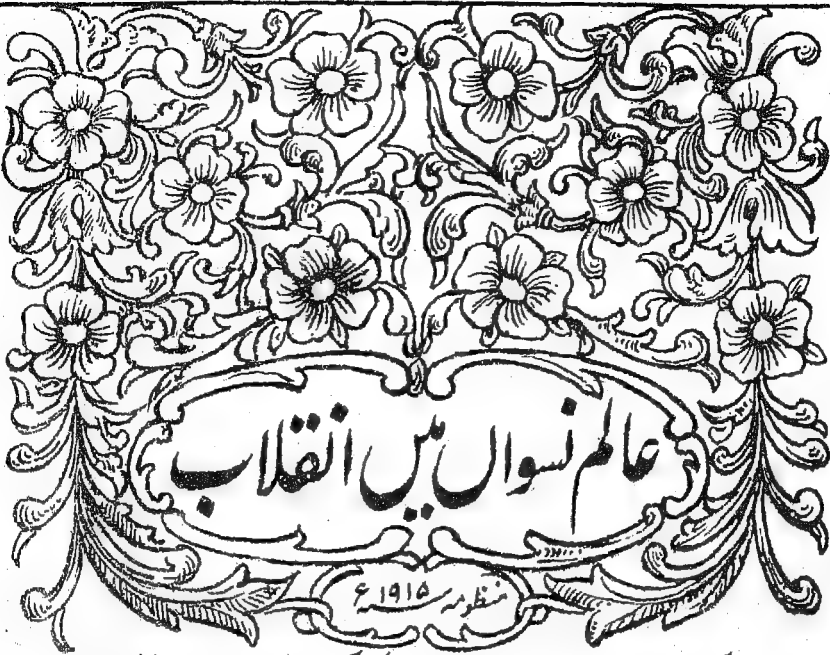 عالم نسواں میں انقلاب
منظومہ ۱۹۱۵ء